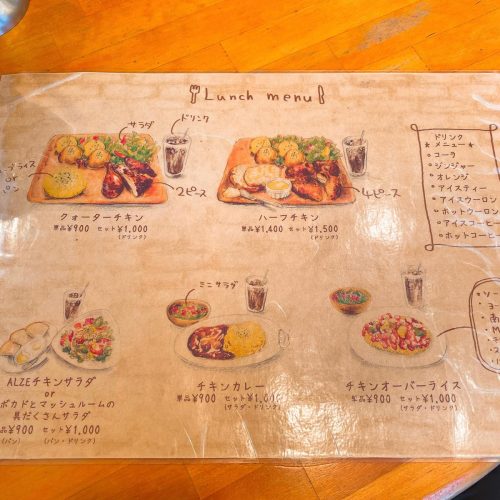 Lunch menu
サラダ
ドリンク
ライス
or
パン
2ピース
4ピース
クォーターチキン
単品¥900 セット¥1,000
(ドリンク)
ハーフチキン
単品¥1,400 セット¥1,500
(ドリンク)
ドリンク
★メニュー★
コーラ
ジンジャー
オレンジ
アイスティー
アイスウーロン
ホットウーロン
アイスコーヒー
ホットコーヒー
ALZEチキンサラダ
or
ボカドとマッシュルームの
具だくさんサラダ
品¥900 セット¥1,000
(パン) (パン・ドリンク)
ミニサラダ
チキンカレー
単品¥900 セット¥1,000
(サラダ・ドリンク)
チキンオーバーライス
単品¥900 セット¥1,000
(サラダ・ドリンク)